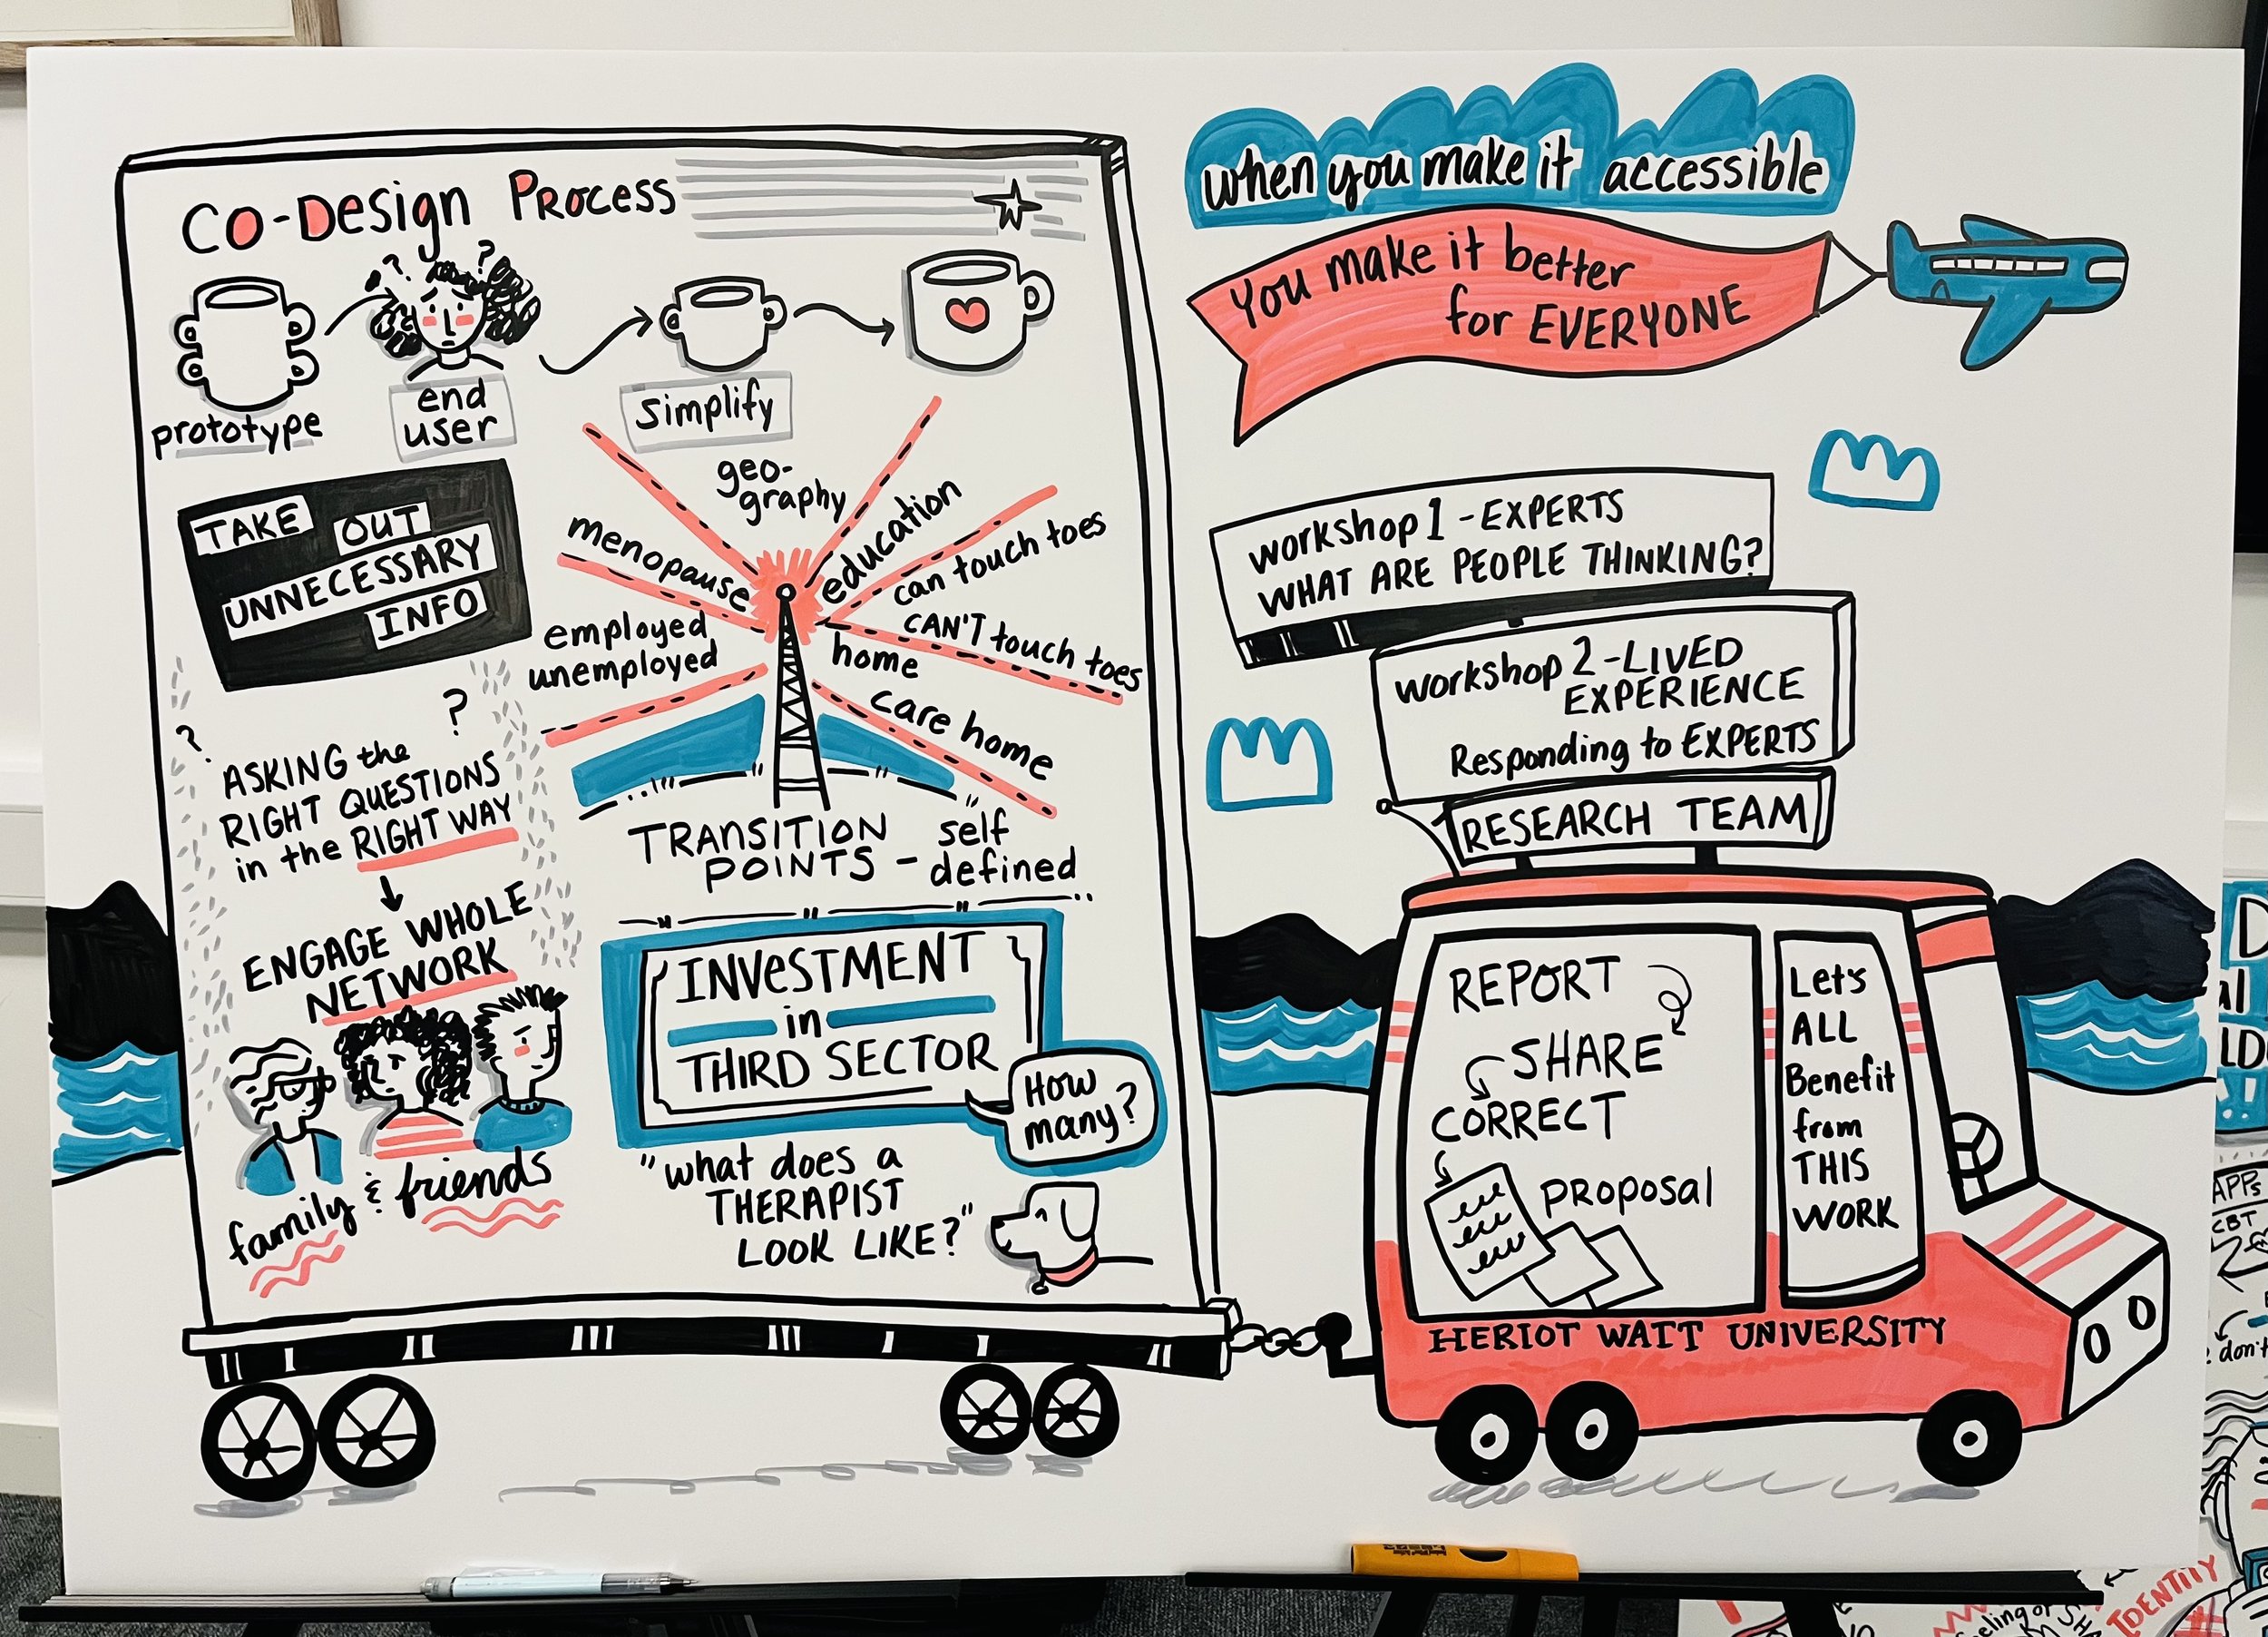 Co-Design Process
prototype
end
user
simplify
TAKE OUT
UNNECESSARY
INFO
?
?
ASKING the
RIGHT QUESTIONS
in the RIGHT WAY
ENGAGE WHOLE
NETWORK
family & friends
geo-
graphy
menopause
education
employed
unemployed
can touch toes
CAN'T touch toes
home
care home
TRANSITION
POINTS - self
defined
INVESTMENT
in
THIRD SECTOR
How
many?
"what does a
THERAPIST
LOOK LIKE?"
when you make it accessible
You make it better
for EVERYONE
workshop 1 - EXPERTS
WHAT ARE PEOPLE THINKING?
workshop 2 - LIVED
EXPERIENCE
Responding to EXPERTS
RESEARCH TEAM
REPORT
SHARE
CORRECT
PROPOSAL
Let's
ALL
Benefit
from
THIS
WORK
HERIOT WATT UNIVERSITY
APPs
CBT
don't
IDENTITY